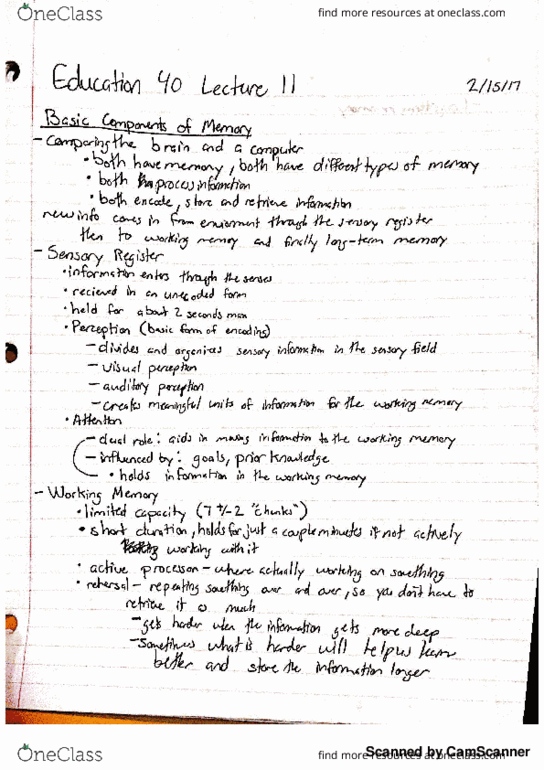 OneClass
find more resources at oneclass.com
Education 40 Lecture 11
2/15/17
Basic Components of Memory
- Comparing the brain and a computer
• both have memory, both have different types of memory
• both process information
• both encode, store and retrieve information
new info comes in from enviorment through the sensory register
then to working memory and finally long-term memory
- Sensory Register
• information enters through the senses
• recieved in an unecoded form
• held for about 2 seconds max
• Perception (basic form of encoding)
- divides and organizes sensory information in the sensory field
- visual perception
- auditory perception
- creates meaningful units of information for the working memory
• Attention
- dual role: aids in moving information to the working memory
- influenced by: goals, prior knowledge
• holds information in the working memory
- Working Memory
• limited capacity (7 +/-2 "chunks")
• short duration, holds for just a couple minutes if not actively
working with it
• active processor - where actually working on something
• rehersal - repeating something over and over, so you don't have to
retrieve it as much
- gets harder when the information gets more deep
- sometimes what is harder will help us learn
better and store the information longer
OneClass
find more resources at oneclass.com
Scanned by CamScanner